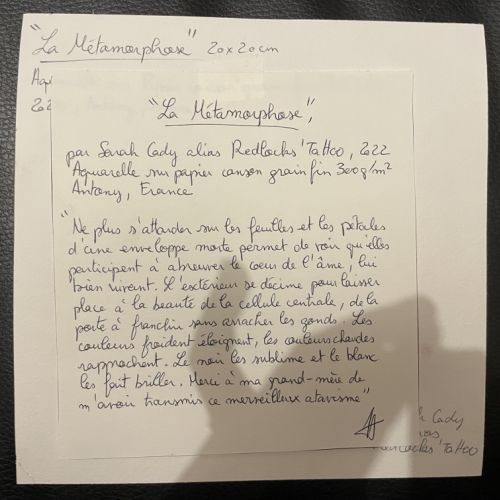 "La Métamorphose" 20x20cm
"La Métamorphose",
par Sarah Cady alias Redlocks'Tattoo, 2022
Aquarelle sur papier canson grain fin 300g/m²
Antony, France
"Ne plus s'attarder sur les feuilles et les pétales
d'une enveloppe morte permet de voir qu'elles
participent à abreuver le coeur de l'âme, lui
bien vivant. L'extérieur se décime pour laisser
place à la beauté de la cellule centrale, de la
porte à franchir sans arracher les gonds. Les
couleurs froident éloignent, les couleurs chaudes
rapprochent. Le noir les sublime et le blanc
les fait briller. Merci à ma grand-mère de
m'avoir transmis ce merveilleux atavisme"
Cady
Tattoo